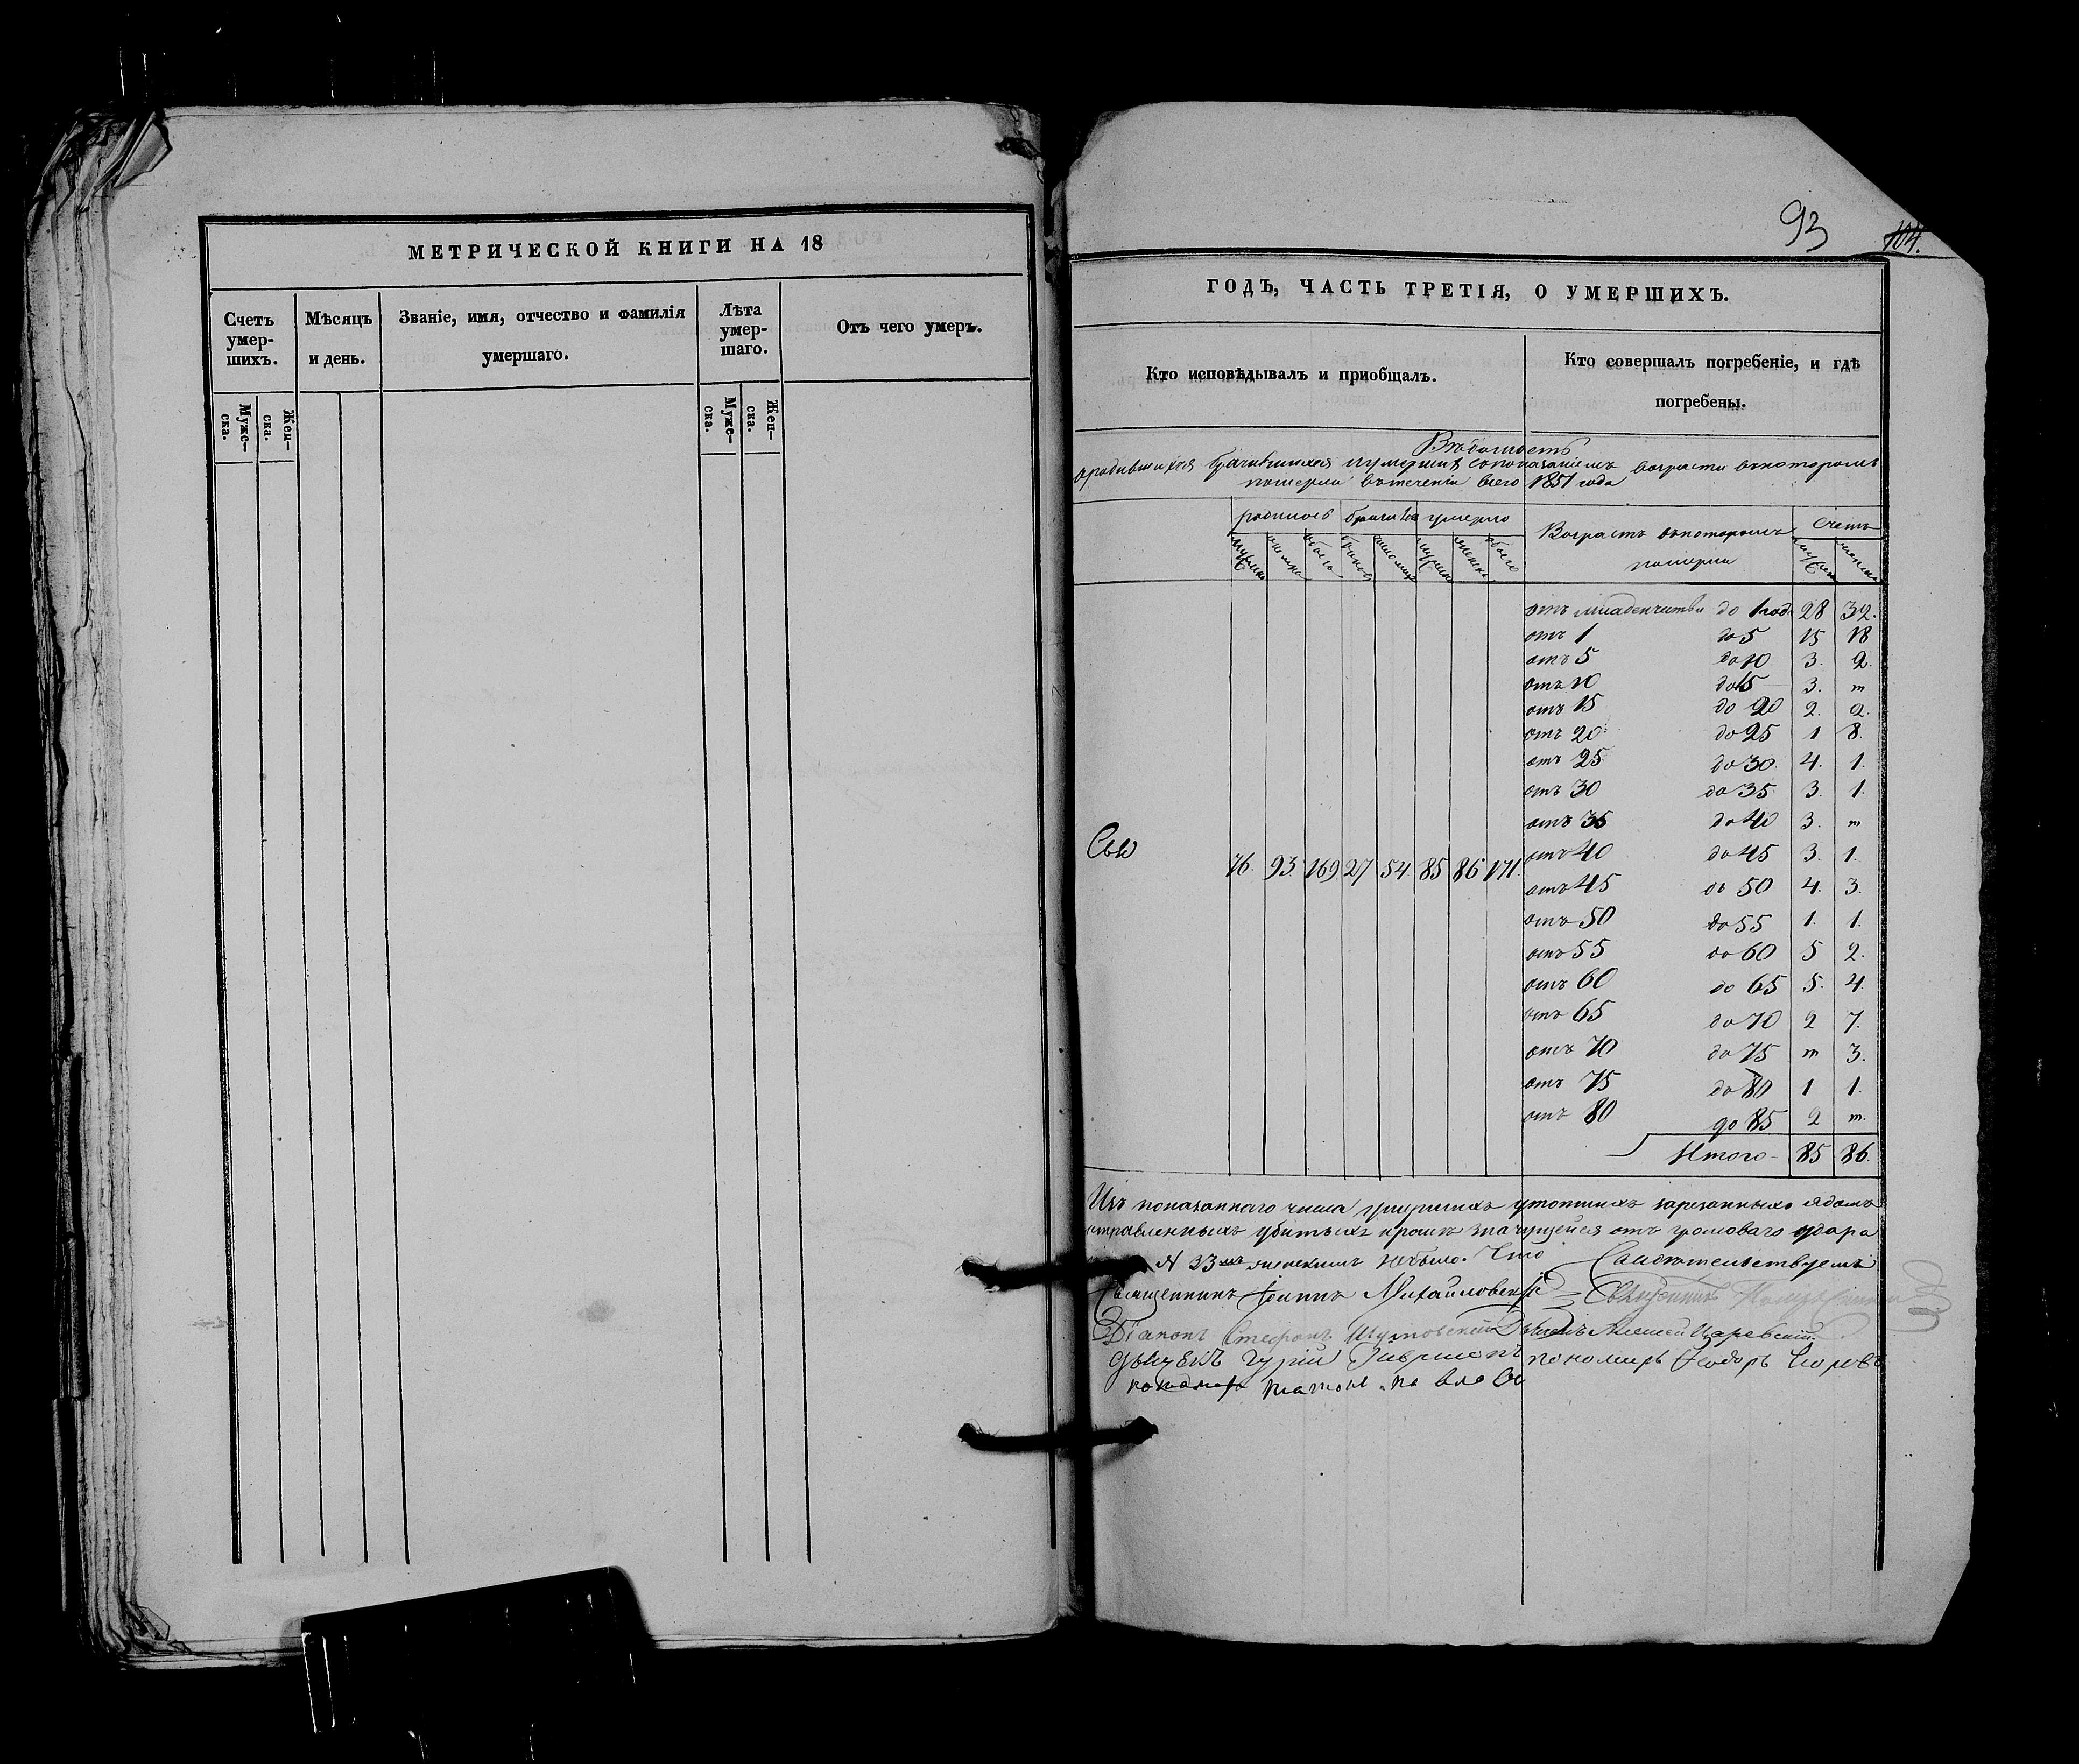 МЕТРИЧЕСКОЙ КНИГИ НА 18
Счетъ умер-шихъ.
Мѣсяцъ и день.
Званіе, имя, отчество и фамилія умершаго.
Лѣта умер-шаго.
Отъ чего умеръ.
Муже-ска.
Жен-ска.
Муже-ска.
Жен-ска.
93
104.
ГОДЪ, ЧАСТЬ ТРЕТІЯ, О УМЕРШИХЪ.
Кто исповѣдывалъ и приобщалъ.
Кто совершалъ погребеніе, и гдѣ погребены.
Вѣдомость
о родившихся бракившихся и умершихъ съ показаніемъ возраста въ которомъ
померли въ теченіи всего 1851 года
умерло
Возрастъ въ которомъ померли
Счетъ
76. 93. 169 27 54. 85 86 171.
отъ младенчества до 1 год. 28 32.
отъ 1 до 5 15 18
отъ 5 до 10 3. 2.
отъ 10 до 15 3. m
отъ 15 до 20 2. 2.
отъ 20 до 25 1 8.
отъ 25 до 30. 4. 1.
отъ 30 до 35 3. 1.
отъ 35 до 40 3. m
отъ 40 до 45 3. 1.
отъ 45 до 50 4. 3.
отъ 50 до 55 1. 1.
отъ 55 до 60 5 2.
отъ 60 до 65 5. 4.
отъ 65 до 70 2 7.
отъ 70 до 75 m 3.
отъ 75 до 80 1 1.
отъ 80 до 85 2 m.
Итого 85 86.
Изъ показаннаго числа умершихъ утопшихъ зарезанныхъ ядомъ
отравленныхъ убитыхъ кромѣ значущейся отъ громоваго удара
N 33 женскимъ небыло. Что Свидѣтельствуемъ
Священникъ Іоаннъ Михайловскій Священникъ
Діаконъ Стефанъ Алексей Царевскій.
Дьячекъ Гурій пономарь Ѳеодоръ
пономарь